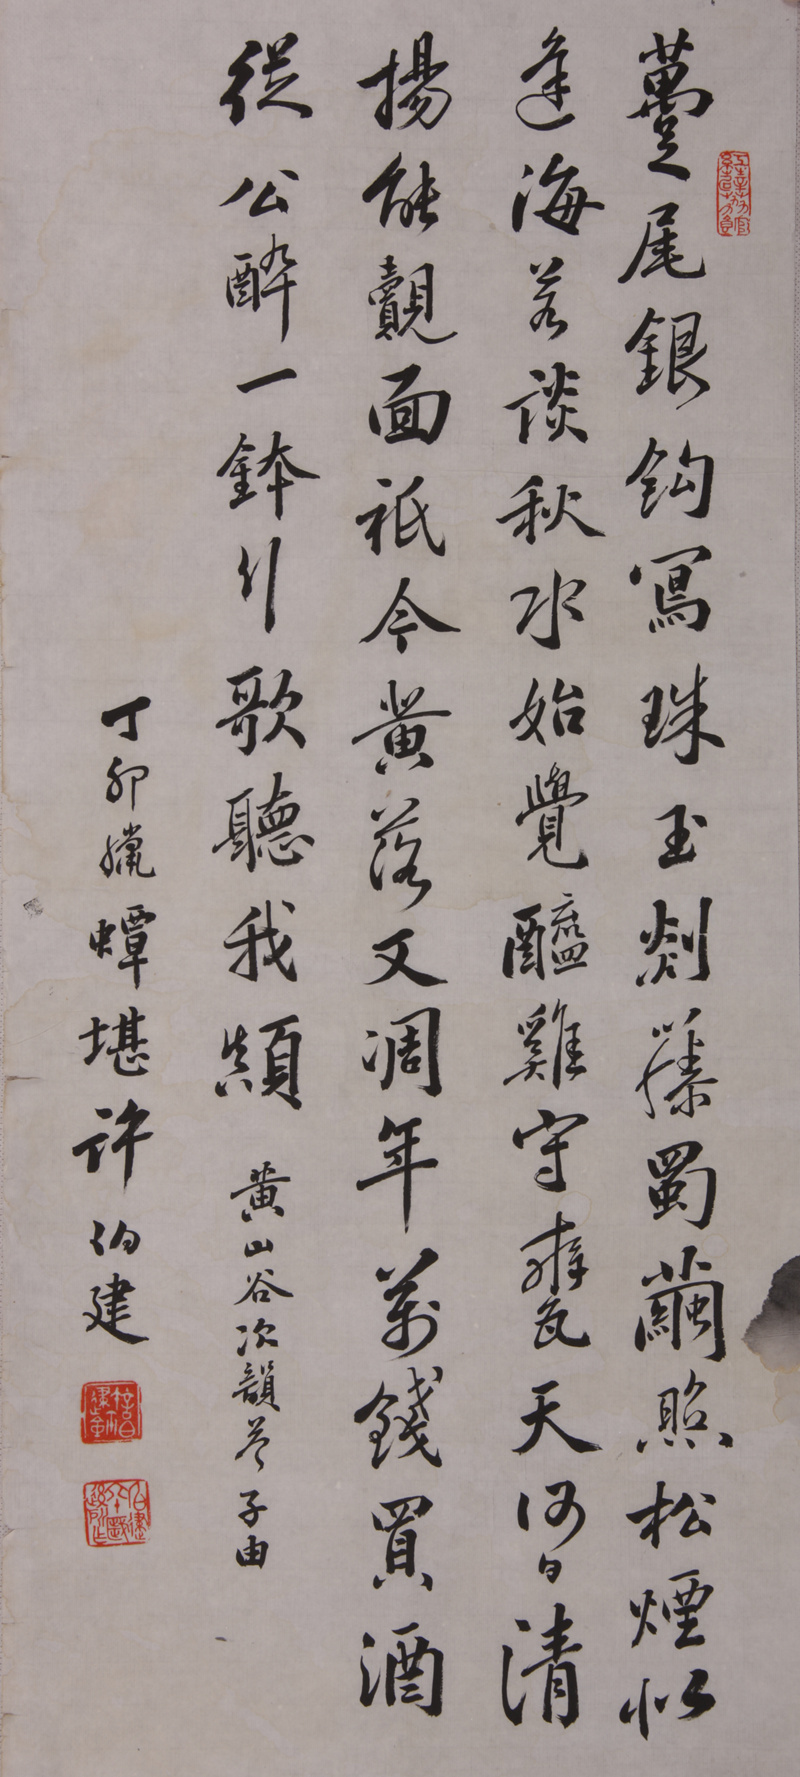 蠆尾銀鈎寫珠玉剡藤蜀繭照松煙似
逢海若談秋水始覺醯雞守甕天何日清
揚能覿面祇今黄落又凋年萬錢買酒
從公醉一鉢行歌聽我顛
黄山谷次韻答子由
丁卯臘蟫堪許伯建